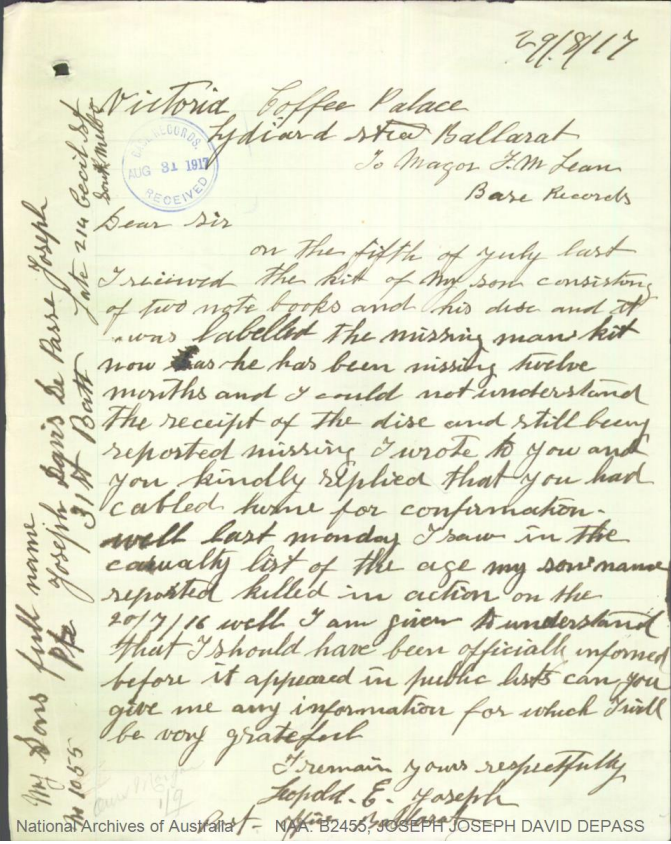 29/8/17
Victoria Coffee Palace
Lydiard Street Ballarat
To Magor F. M Lean
Base Records
BASE RECORDS.
AUG 31 1917
RECEIVED
Dear Sir
on the fifth of july last
I recieved the kit of my son consisting
of two note books and his disc and it
was labelled the missing mans kit
now as he has been missing twelve
months and I could not understand
the receipt of the disc and still being
reported missing I wrote to you and
you kindly replied that you had
cabled home for confirmation.
well last monday I saw in the
casualty list of the age my sons name
reported killed in action on the
20/7/16 well I am given to understand
that I should have been officially informed
before it appeared in public lists can you
give me any information for which I will
be very grateful
I remain yours respectfully
Leopold. E. Joseph
Post - Office Ballarat
My Sons full name
Pte Joseph Davis De Passe Joseph
No 1055 31st Batt Late 214 Cecil St
South Melb
1/9
National Archives of Australia
NAA: B2455, JOSEPH JOSEPH DAVID DEPASS